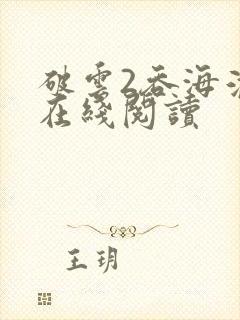 破雲2吞海
在綫閱讀
王玥